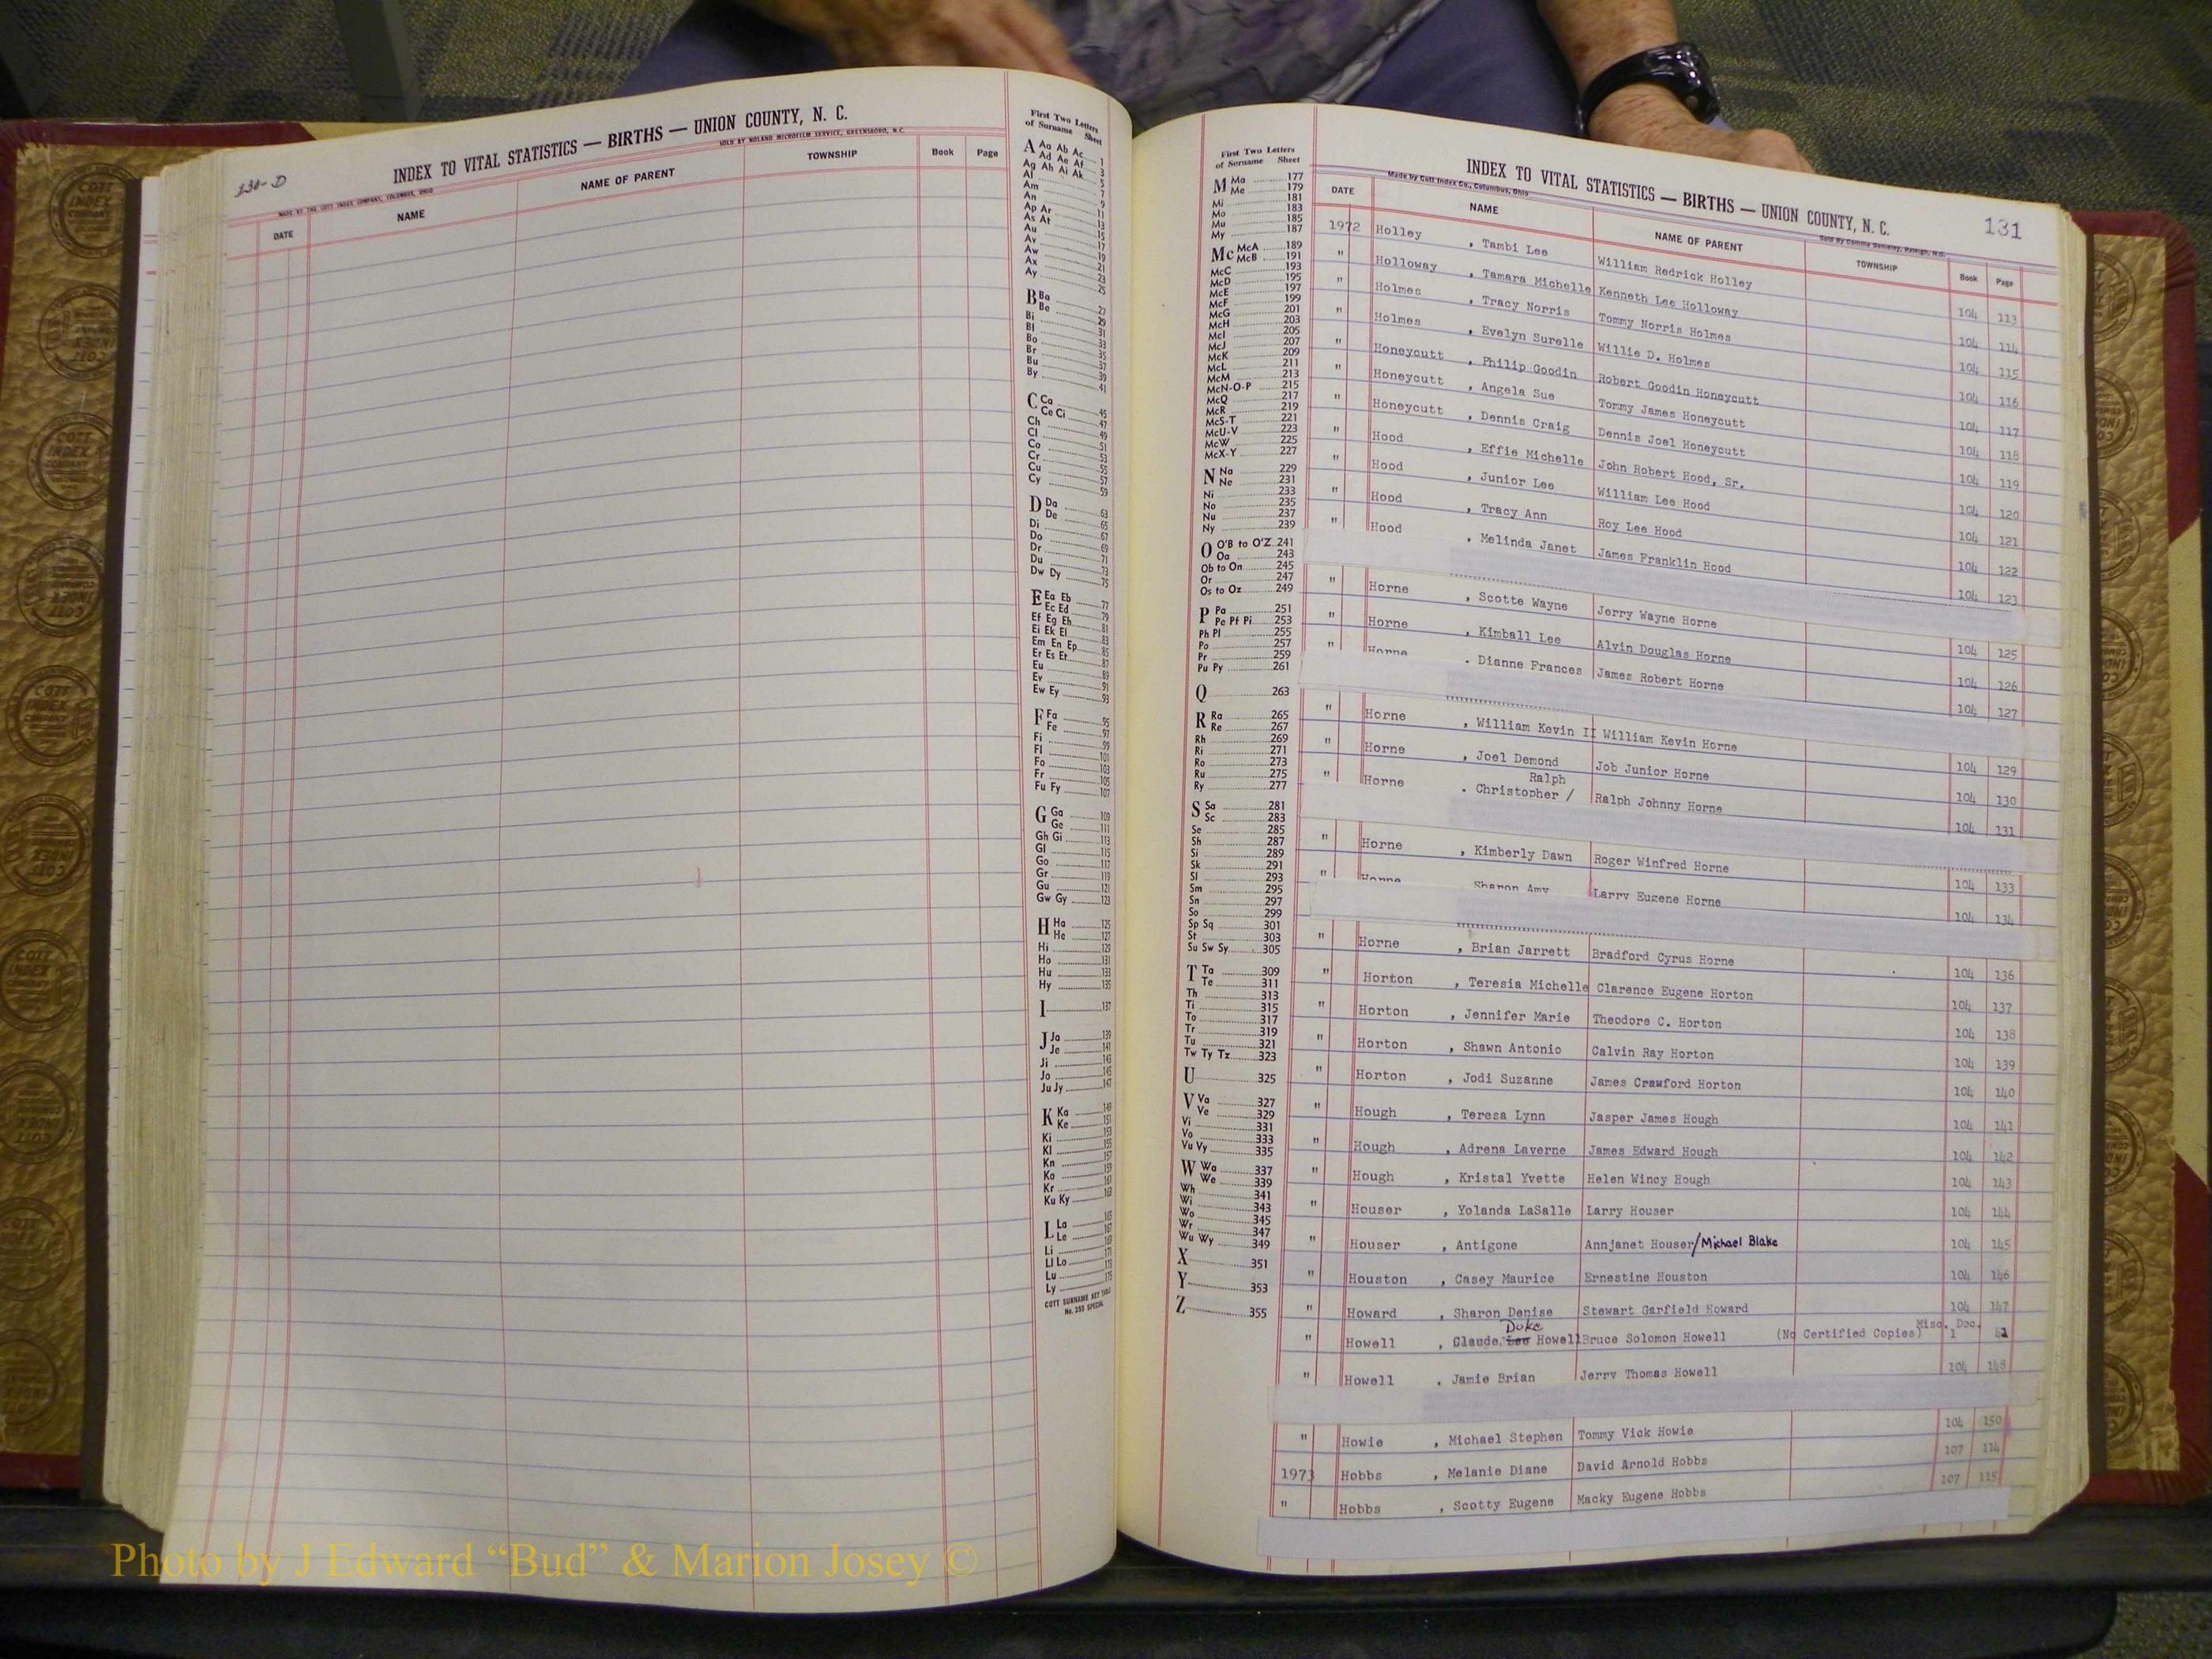 130-D
INDEX TO VITAL STATISTICS — BIRTHS — UNION COUNTY, N. C.
SOLD BY NOLAND MICROFILM SERVICE, GREENSBORO, N.C.
MADE BY THE COTT INDEX COMPANY, COLUMBUS, OHIO
DATE NAME NAME OF PARENT TOWNSHIP Book Page
First Two Letters
of Surname Sheet
A Aa Ab Ac 1
Ad Ae Af 3
Ag Ah Ai Ak 5
Al 7
Am 9
An 11
Ap Ar 13
As At 15
Au 17
Av 19
Aw 21
Ax 23
Ay 25
B Ba 27
Be 29
Bi 31
Bl 33
Bo 35
Br 37
Bu 39
By 41
C Ca 45
Ce Ci 47
Ch 49
Cl 51
Co 53
Cr 55
Cu 57
Cy 59
D Da 63
De 65
Di 67
Do 69
Dr 71
Du 73
Dw Dy 75
E Ea Eb 77
Ec Ed 79
Ef Eg Eh 81
Ei Ek El 83
Em En Ep 85
Er Es Et 87
Eu 89
Ev 91
Ew Ey 93
F Fa 95
Fe 97
Fi 99
Fl 101
Fo 103
Fr 105
Fu Fy 107
G Ga 109
Ge 111
Gh Gi 113
Gl 115
Go 117
Gr 119
Gu 121
Gw Gy 123
H Ha 125
He 127
Hi 129
Ho 131
Hu 133
Hy 135
I 137
J Ja 139
Je 141
Ji 143
Jo 145
Ju Jy 147
K Ka 149
Ke 151
Ki 153
Kl 155
Kn 157
Ko 159
Kr 161
Ku Ky 163
L La 165
Le 167
Li 169
Ll Lo 171
Lu 173
Ly 175
COTT SURNAME KEY TABLE
No. 355 SPECIAL
First Two Letters
of Surname Sheet
M Ma 177
Me 179
Mi 181
Mo 183
Mu 185
My 187
Mc McA 189
McB 191
McC 193
McD 195
McE 197
McF 199
McG 201
McH 203
McI 205
McJ 207
McK 209
McL 211
McM 213
McN-O-P 215
McQ 217
McR 219
McS-T 221
McU-V 223
McW 225
McX-Y 227
N Na 229
Ne 231
Ni 233
No 235
Nu 237
Ny 239
O O'B to O'Z 241
Oa 243
Ob to On 245
Or 247
Os to Oz 249
P Pa 251
Pe Pf Pi 253
Ph Pl 255
Po 257
Pr 259
Pu Py 261
Q 263
R Ra 265
Re 267
Rh 269
Ri 271
Ro 273
Ru 275
Ry 277
S Sa 281
Sc 283
Se 285
Sh 287
Si 289
Sk 291
Sl 293
Sm 295
Sn 297
So 299
Sp Sq 301
St 303
Su Sw Sy 305
T Ta 309
Te 311
Th 313
Ti 315
To 317
Tr 319
Tu 321
Tw Ty Tz 323
U 325
V Va 327
Ve 329
Vi 331
Vo 333
Vu Vy 335
W Wa 337
We 339
Wh 341
Wi 343
Wo 345
Wr 347
Wu Wy 349
X 351
Y 353
Z 355
INDEX TO VITAL STATISTICS — BIRTHS — UNION COUNTY, N. C.
131
Made by Cott Index Co., Columbus, Ohio
DATE NAME NAME OF PARENT TOWNSHIP Book Page
1972 Holley , Tambi Lee William Redrick Holley 104 113
" Holloway , Tamara Michelle Kenneth Lee Holloway 104 114
" Holmes , Tracy Norris Tommy Norris Holmes 104 115
" Holmes , Evelyn Surelle Willie D. Holmes 104 116
" Honeycutt , Philip Goodin Robert Goodin Honeycutt 104 117
" Honeycutt , Angela Sue Tommy James Honeycutt 104 118
" Honeycutt , Dennis Craig Dennis Joel Honeycutt 104 119
" Hood , Effie Michelle John Robert Hood, Sr. 104 120
" Hood , Junior Lee William Lee Hood 104 121
" Hood , Tracy Ann Roy Lee Hood 104 122
" Hood , Melinda Janet James Franklin Hood 104 123
" Horne , Scotte Wayne Jerry Wayne Horne 104 125
" Horne , Kimball Lee Alvin Douglas Horne 104 126
" Horne , Dianne Frances James Robert Horne 104 127
" Horne , William Kevin II William Kevin Horne 104 129
" Horne , Joel Demond Job Junior Horne 104 130
Ralph
" Horne , Christopher / Ralph Johnny Horne 104 131
" Horne , Kimberly Dawn Roger Winfred Horne 104 133
" Horne Sharon Amy Larry Eugene Horne 104 134
" Horne , Brian Jarrett Bradford Cyrus Horne 104 136
" Horton , Teresia Michelle Clarence Eugene Horton 104 137
" Horton , Jennifer Marie Theodore C. Horton 104 138
" Horton , Shawn Antonio Calvin Ray Horton 104 139
" Horton , Jodi Suzanne James Crawford Horton 104 140
" Hough , Teresa Lynn Jasper James Hough 104 141
" Hough , Adrena Laverne James Edward Hough 104 142
" Hough , Kristal Yvette Helen Wincy Hough 104 143
" Houser , Yolanda LaSalle Larry Houser 104 144
" Houser , Antigone Annjanet Houser/Michael Blake 104 145
" Houston , Casey Maurice Ernestine Houston 104 146
" Howard , Sharon Denise Stewart Garfield Howard 104 147
Duke Misc. Doc.
" Howell , Claude Lee Howell Bruce Solomon Howell (No Certified Copies) 1
" Howell , Jamie Brian Jerry Thomas Howell 104 148
" Howie , Michael Stephen Tommy Vick Howie 104 150
1973 Hobbs , Melanie Diane David Arnold Hobbs 107 114
" Hobbs , Scotty Eugene Macky Eugene Hobbs 107 115
Photo by J Edward “Bud” & Marion Josey ©